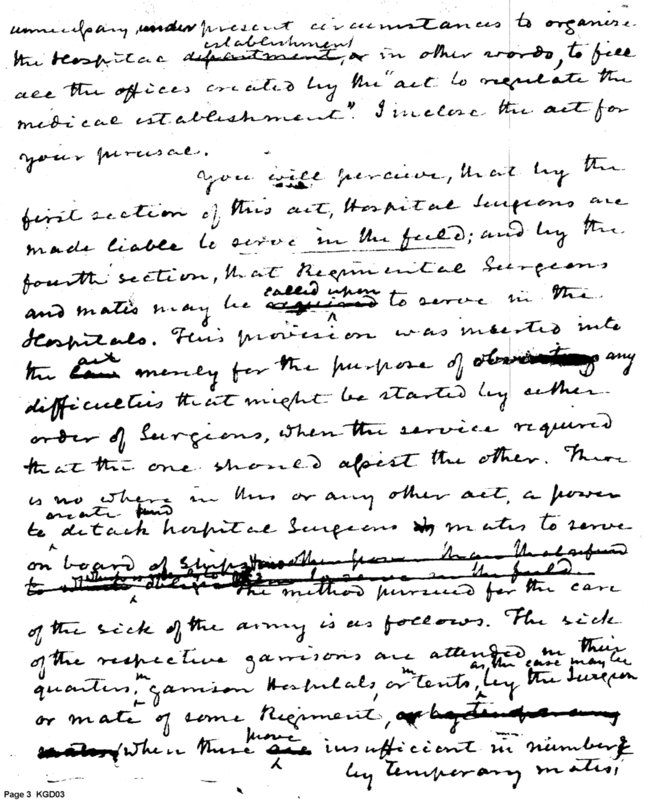 unnecessary under present circumstances to organise
the Hospital department, establishment or in other words, to fill
all the offices created by the "act to regulate the
medical establishment". I inclose the act for
your perusal.
You will perceive, that by the
first section of this act, Hospital Surgeons are
made liable to serve in the field; and by the
fourth section, that Regimental Surgeons
and mates may be required called upon to serve in the
Hospitals. This provision was inserted into
the law act merely for the purpose of obviating any
difficulties that might be started by either
order of Surgeons, when the service required
that the one should assist the other. There
is no where in this or any other act, a power
to create and detach hospital Surgeons mates to serve
on board of Ships than that
to in the field The method pursued for the care
of the sick of the army is as follows. The sick
of the respective garrisons are attended in their
quarters, in garrison Hospitals, or in tents, as the case may be by the Surgeon
or mate of some Regiment, or by temporary
mates, when these are prove insufficient in number
by temporary mates;
Page 3 KGD03